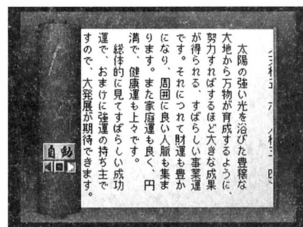 太陽の強い光を浴びた豊穣な
大地から万物が育成するように、
努力すればするほど大きな成果
が得られる、すばらしい事業運
です。それにつれて財運も豊か
になり、周囲に良い人脈も集ま
ります。また家庭運も良く、円
満で、健康運も上々です。
総体的に見てすばらしい成功
運で、おまけに強運の持ち主で
すので、大発展が期待できます。
自動